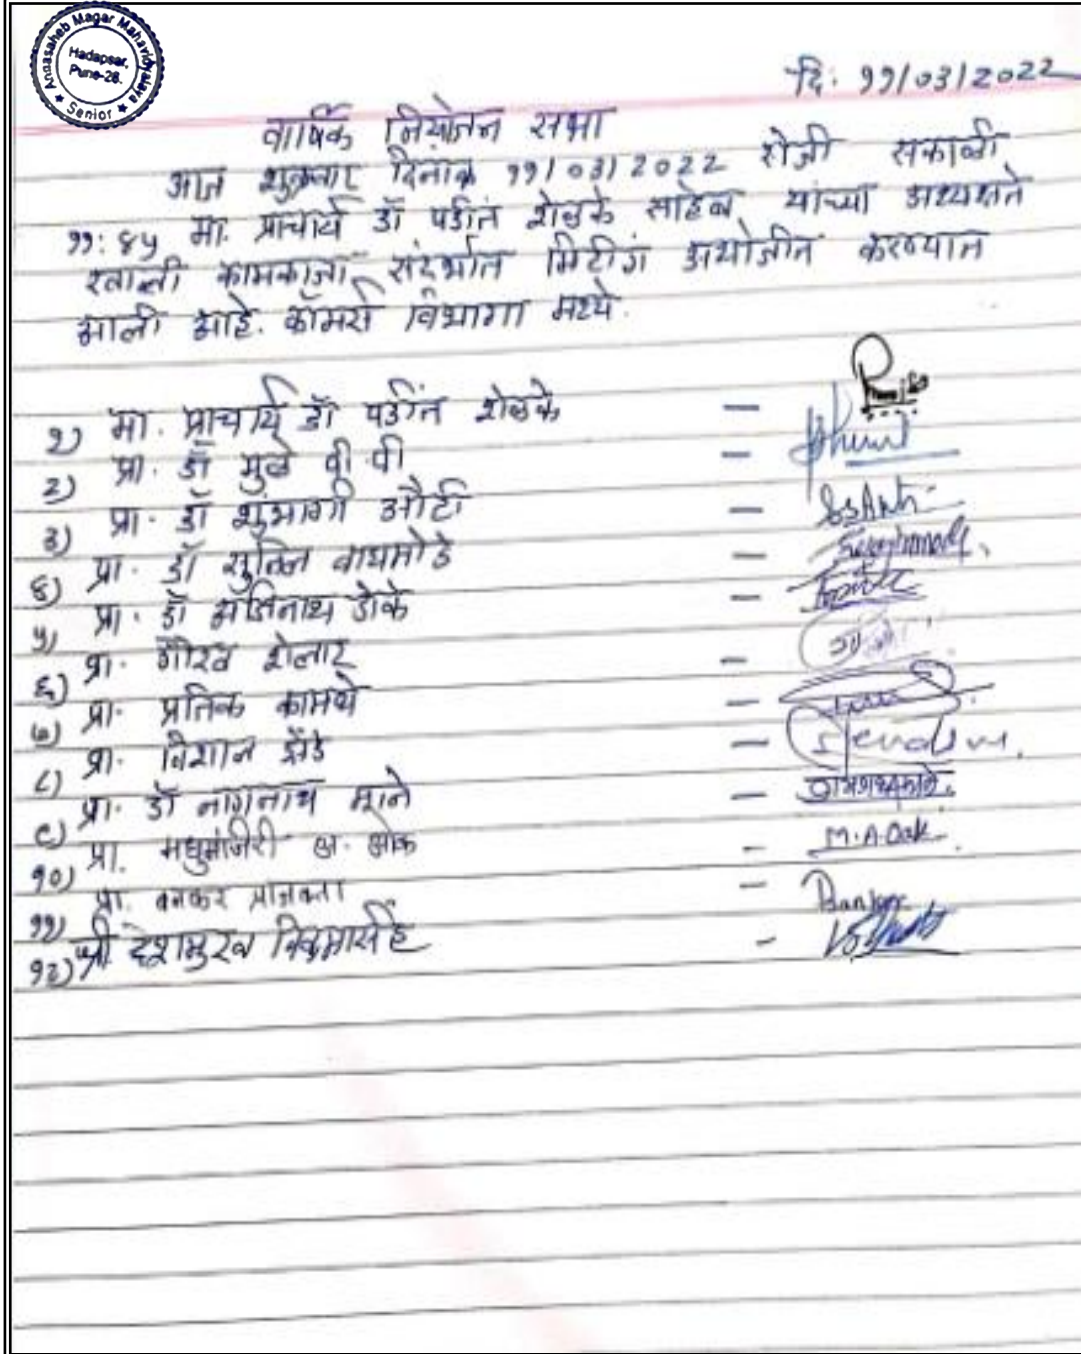 Annasaheb Magar Mahavidyalaya
Hadapsar,
Pune-28.
★ Senior ★
दि: ११/०३/2022
वार्षिक नियोजन सभा
आज शुक्रवार दिनांक ११/०३/2022 रोजी सकाळी
११:४५ मा. प्राचार्य डॉ पंडीत शेळके साहेब यांच्या अध्यक्षते
खाली कामकाजा संदर्भात मिटींग अयोजीत करण्यात
आली आहे. कॉमर्स विभागा मध्ये.
१) मा. प्राचार्य डॉ पंडीत शेळके -
२) प्रा. डॉ मुळे पी पी -
३) प्रा. डॉ शुभांगी औटी -
४) प्रा. डॉ सुनिल वाघमोडे -
५) प्रा. डॉ अजिनाथ डोके -
६) प्रा. गौरव शेलार -
७) प्रा. प्रतिक कामथे -
८) प्रा. विशाल शेंडे -
९) प्रा. डॉ नागनाथ माने -
१०) प्रा. मधुमंजिरी अ. ओक - M.A.Oak.
११) प्रा. बनकर प्राजक्ता - Bankar
१२) श्री देशमुख विक्रमसिंह -